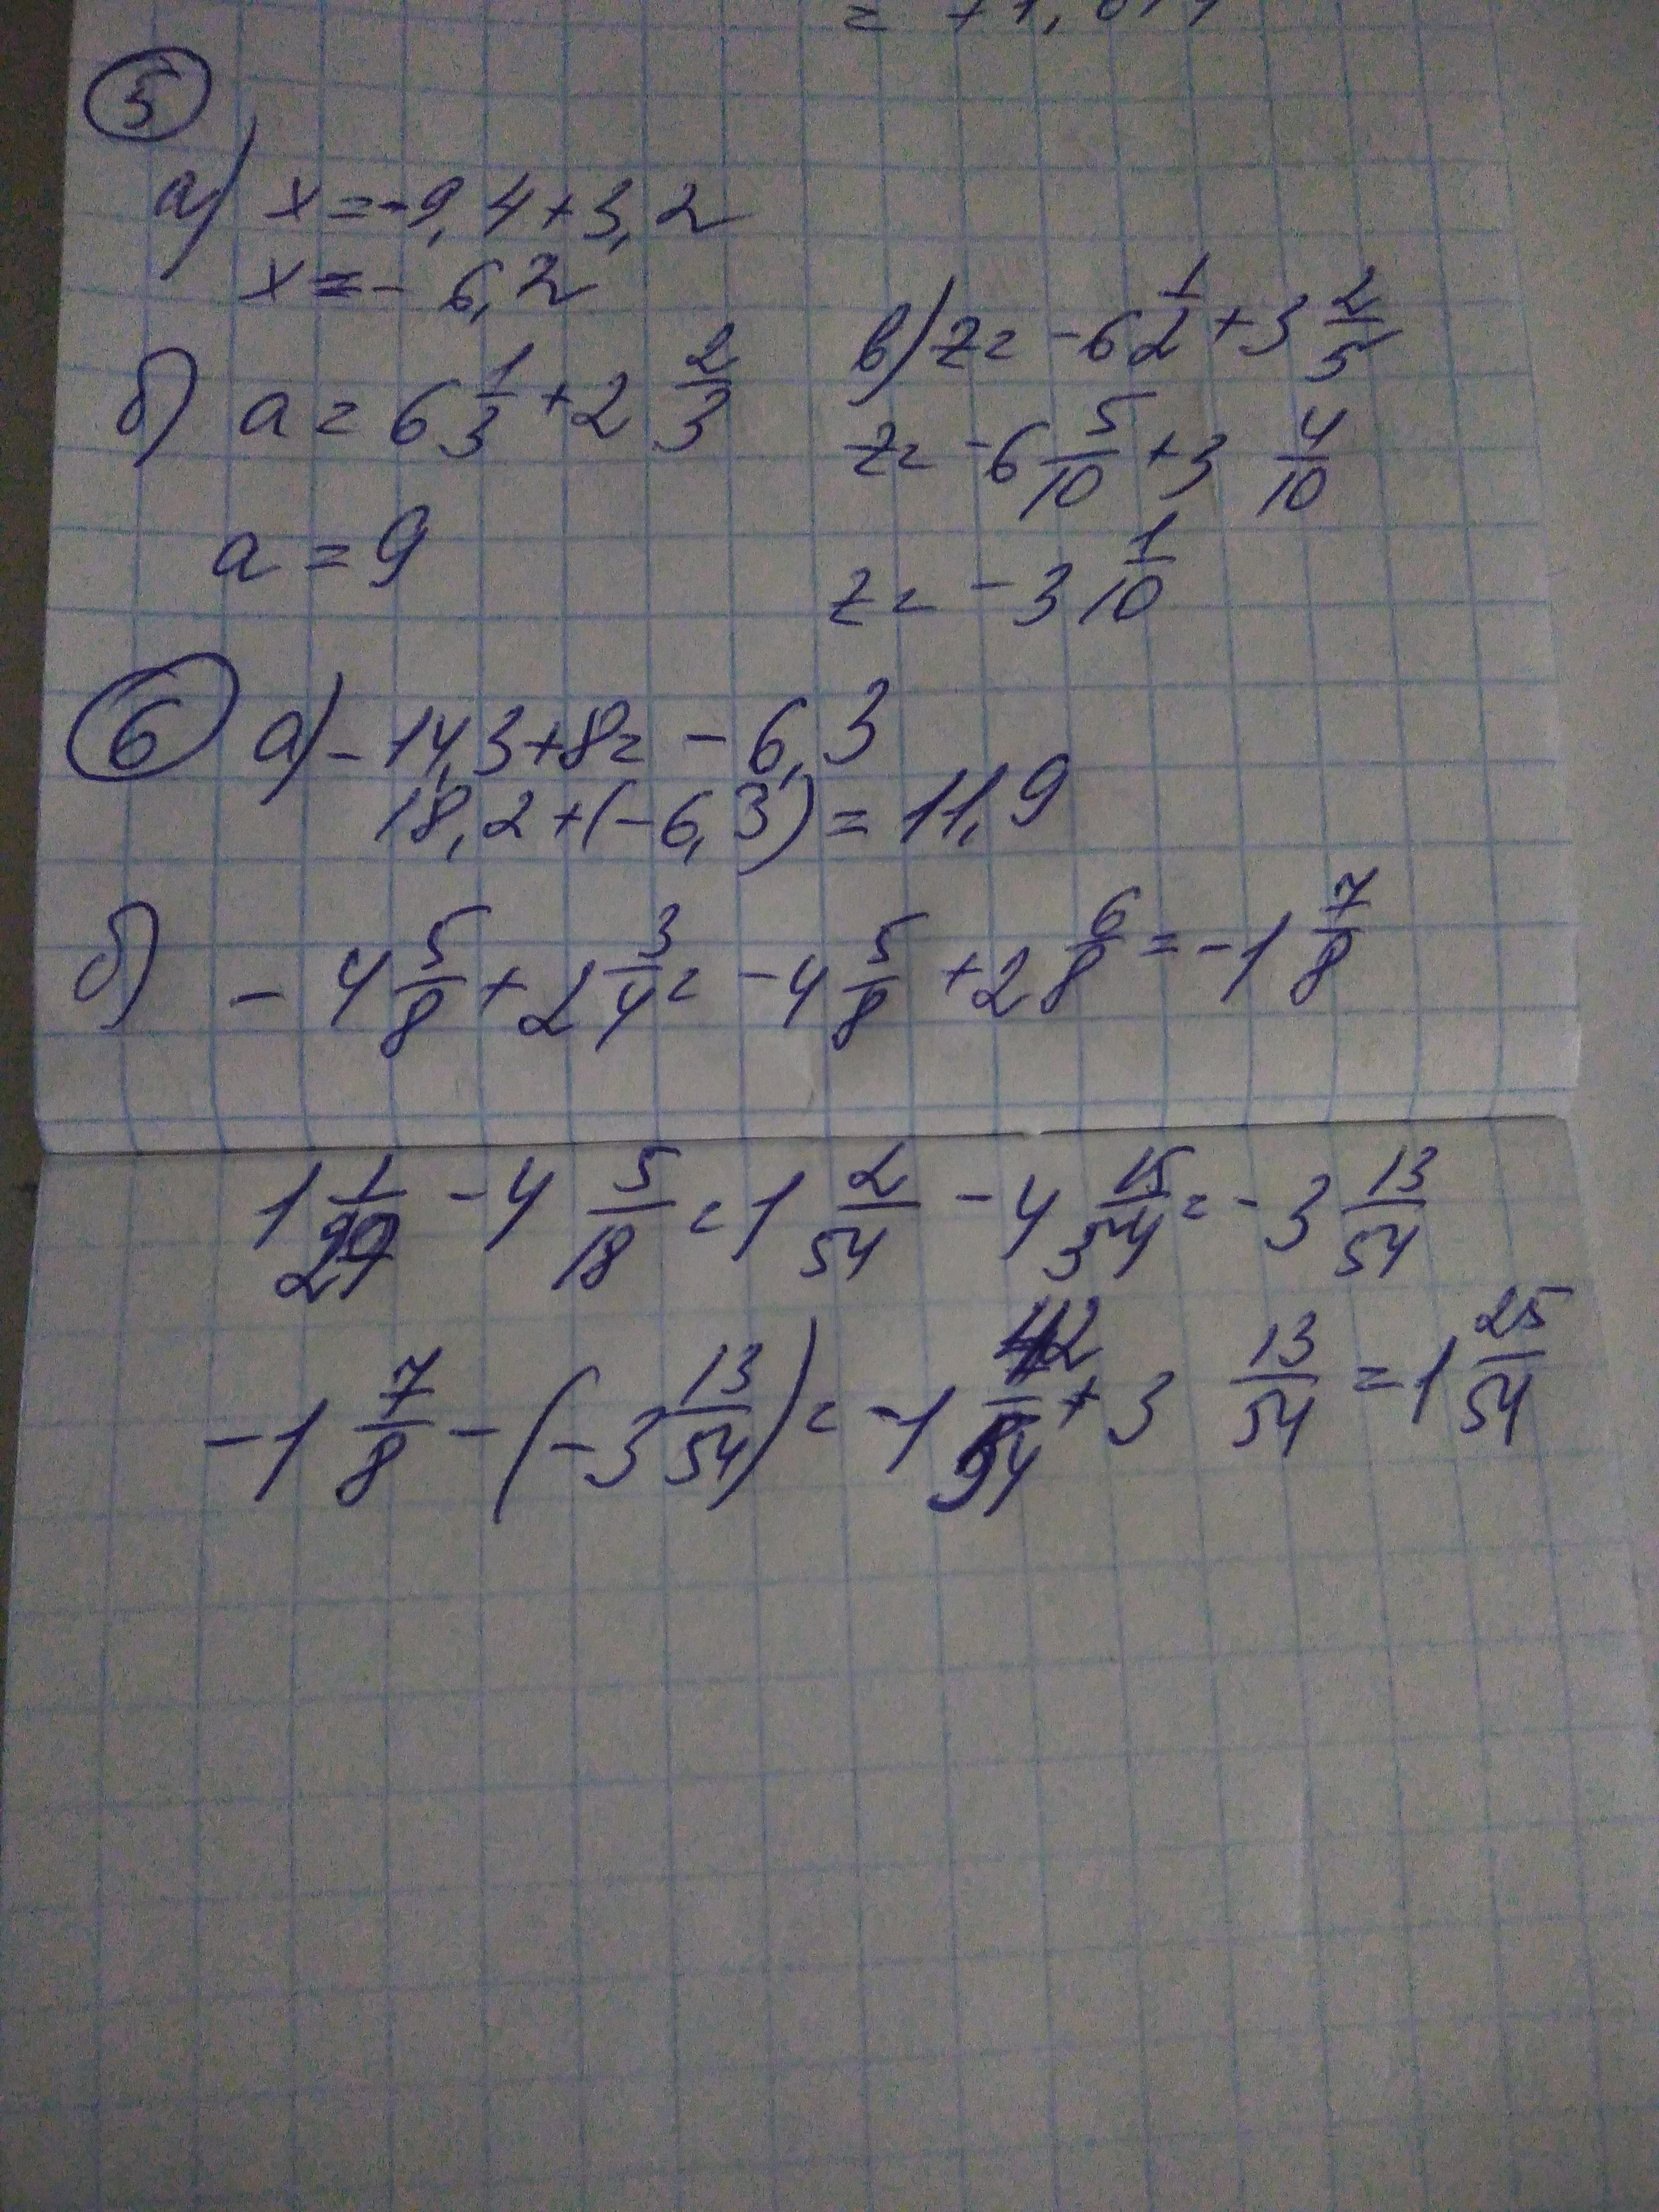 5
а) x = -9,4 + 3,2
x = - 6,2
б) a = 6 1/3 + 2 2/3
a = 9
в) z = -6 1/2 + 3 2/5
z = -6 5/10 + 3 4/10
z = -3 1/10
6 а) - 14,3 + 8 = - 6,3
18,2 + (-6,3) = 11,9
б) - 4 5/8 + 2 3/4 = - 4 5/8 + 2 6/8 = - 1 7/8
1 1/27 - 4 5/18 = 1 2/54 - 4 15/54 = - 3 13/54
- 1 7/8 - (- 3 13/54) = - 1 42/54 + 3 13/54 = 1 25/54